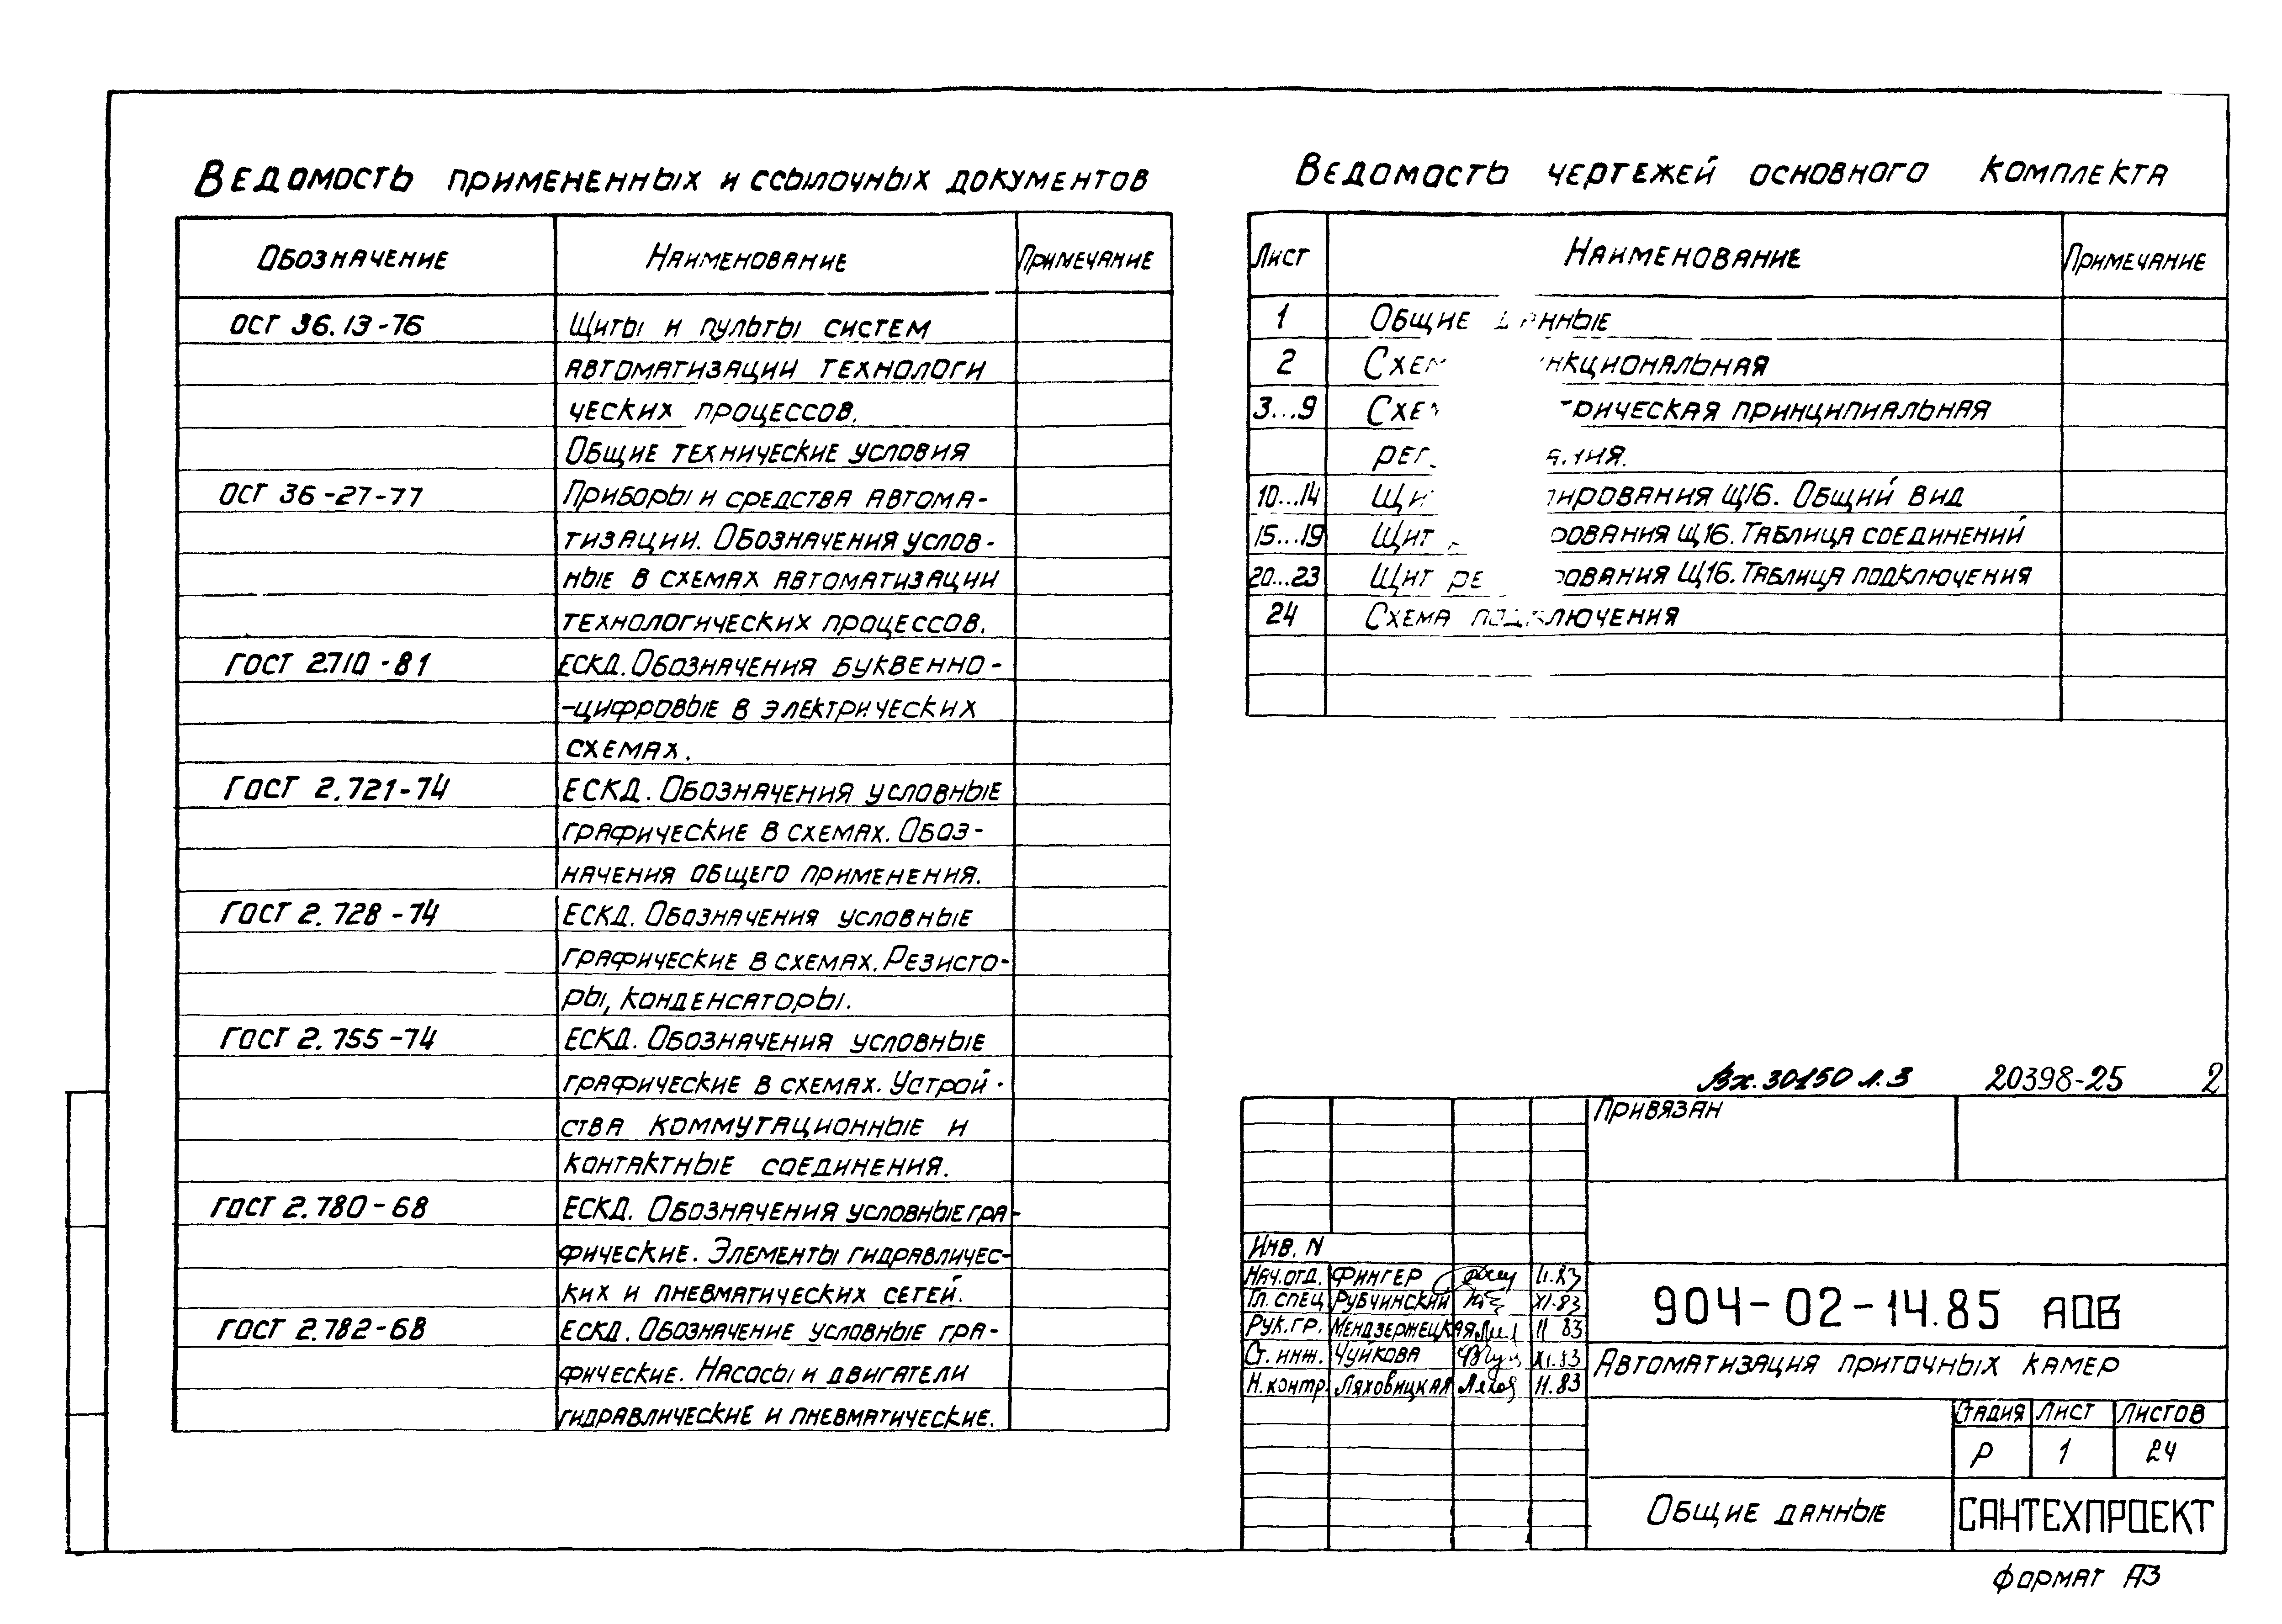 Ведомость примененных и ссылочных документов
Обозначение Наименование Примечание
ОСТ 36.13-76 Щиты и пульты систем
автоматизации технологи
ческих процессов.
Общие технические условия
ОСТ 36-27-77 Приборы и средства автома-
тизации. Обозначения услов-
ные в схемах автоматизации
технологических процессов.
ГОСТ 2.710-81 ЕСКД. Обозначения буквенно-
-цифровые в электрических
схемах.
ГОСТ 2.721-74 ЕСКД. Обозначения условные
графические в схемах. Обоз-
начения общего применения.
ГОСТ 2.728-74 ЕСКД. Обозначения условные
графические в схемах. Резисто-
ры, конденсаторы.
ГОСТ 2.755-74 ЕСКД. Обозначения условные
графические в схемах. Устрой-
ства коммутационные и
контактные соединения.
ГОСТ 2.780-68 ЕСКД. Обозначения условные гра-
фические. Элементы гидравличес-
ких и пневматических сетей.
ГОСТ 2.782-68 ЕСКД. Обозначение условные гра-
фические. Насосы и двигатели
гидравлические и пневматические.
Ведомость чертежей основного комплекта
Лист Наименование Примечание
1 Общие данные
2 Схем нкциональная
3...9 Схе трическая принципиальная
рег ия.
10...14 Щи ирования Щ16. Общий вид
15...19 Щит ования Щ16. Таблица соединений
20...23 Щит ре ования Щ16. Таблица подключения
24 Схема подключения
Вх. 30150 л.3 20398-25 2
Привязан
Инв. N
Нач. отд. Фингер 11.83
Гл. спец Рубчинский XI.83
Рук. гр. Мендзержецкая 11 83
Ст. инж. Чуйкова XI.83
Н. контр. Ляховицкая 11.83
904-02-14.85 АОВ
Автоматизация приточных камер
Стадия Лист Листов
Р 1 24
Общие данные
САНТЕХПРОЕКТ
Формат А3